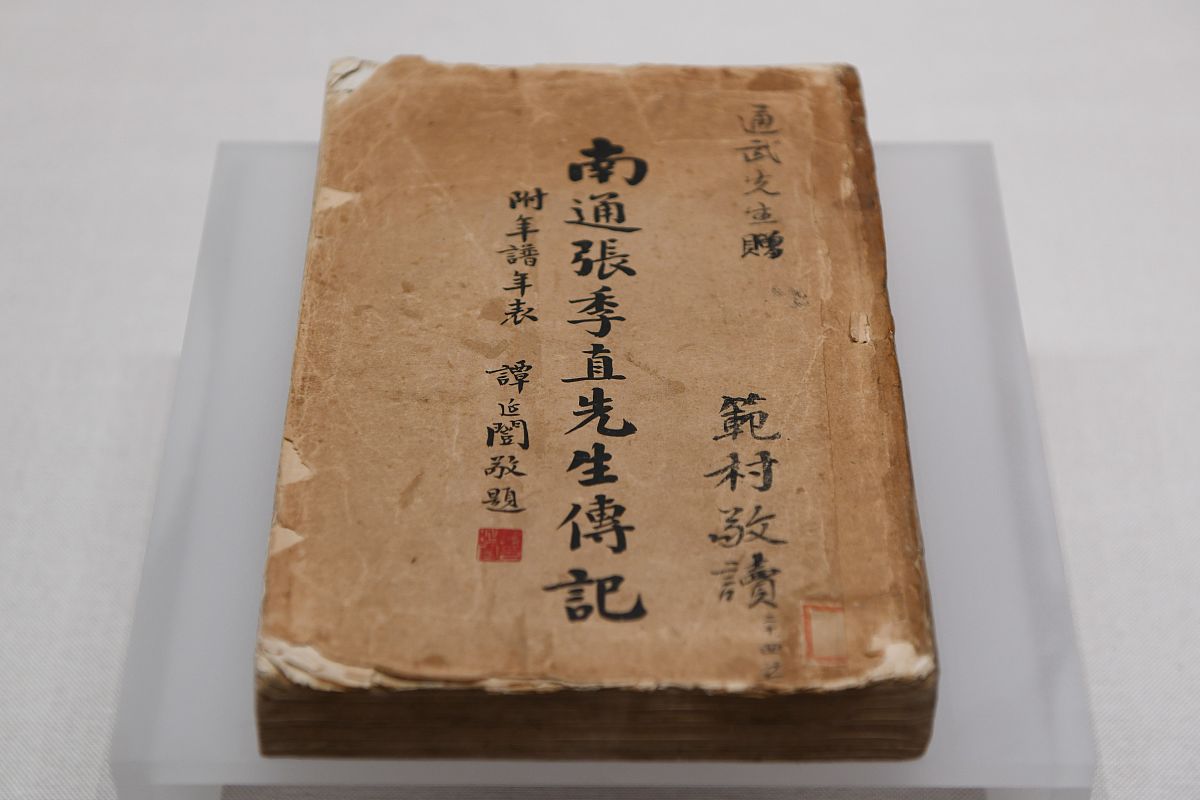 通武先生贈
範村敬讀
南通張季直先生傳記
附年譜年表 譚延闓敬題